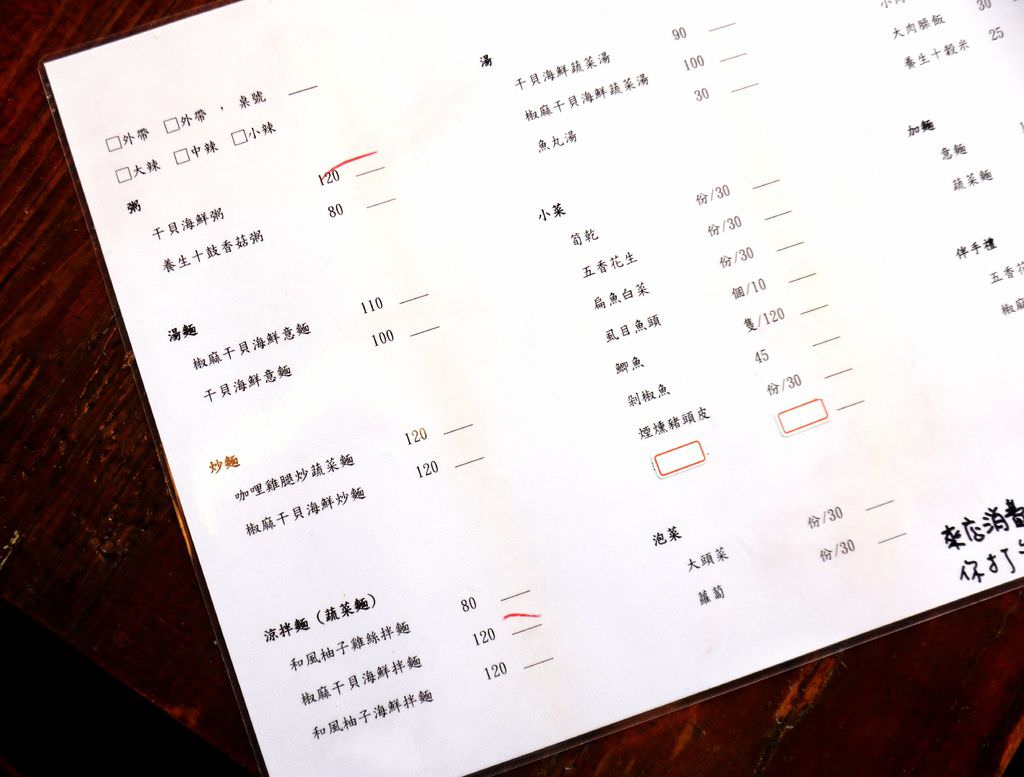 □外帶 □外帶， 桌號
□大辣 □中辣 □小辣
粥
干貝海鮮粥 120
養生十鼓香菇粥 80
湯麵
椒麻干貝海鮮意麵 110
干貝海鮮意麵 100
炒麵
咖哩雞腿炒蔬菜麵 120
椒麻干貝海鮮炒麵 120
涼拌麵（蔬菜麵）
和風柚子雞絲拌麵 80
椒麻干貝海鮮拌麵 120
和風柚子海鮮拌麵 120
湯
干貝海鮮蔬菜湯 90
椒麻干貝海鮮蔬菜湯 100
魚丸湯 30
小菜
筍乾 份/30
五香花生 份/30
扁魚白菜 份/30
虱目魚頭 個/10
鯽魚 隻/120
剁椒魚 45
煙燻豬頭皮 份/30
泡菜
大頭菜 份/30
蘿蔔 份/30
30
大肉臊飯
養生十穀米 25
加麵
意麵
蔬菜麵
伴手禮
五香花
椒麻
來店消費
你打